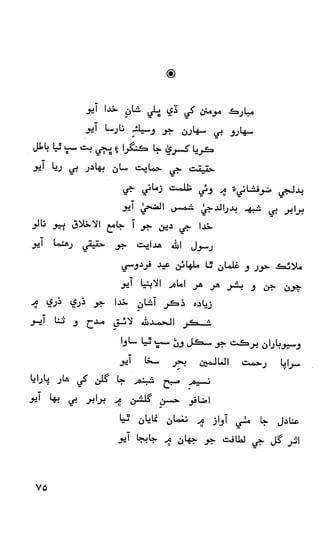 مبارڪ مومنن کي ڏي ڀلي شانِ خدا آيو
سهارو بي سهارن جو وسيلہِ نارسا آيو
ڪريا ڪسريٰ جا ڪنگرا ۽ ڀڄي بت سڀ ٿيا باطل
حقيقت جي حمايت سان بهادر بي ريا آيو
بدلجي ضوفشانيءَ ۾ وئي ظلمت زماني جي
برابر بي شبهہ بدرالدجيٰ شمس الضحيٰ آيو
خدا جي دين جو آ جامع الاخلاق ٻيو نالو
رسول الله هدايت جو حقيقي رهنما آيو
ملائڪ حور و غلمان ٿا ملهائن عيد فردوسي
چون جن و بشر هر هر امام الانبيا آيو
زياده ذڪر آشانِ خدا جو ذري ذري ۾
شڪر الحمدلله لائق مدح و ثنا آيو
وسيوباران برڪت جو سڪل وڻ سڀ ٿيا ساوا
سراپا رحمت العالمين بحرِ سخا آيو
نسيمِ صبح شبنم جا گلن کي هار پارايا
اضافو حسنِ گلشن ۾ برابر بي بها آيو
عنادل جا مٺي آواز ۾ نغمان نمايان ٿيا
اثر گل جي لطافت جو جهان ۾ جابجا آيو
٧٥